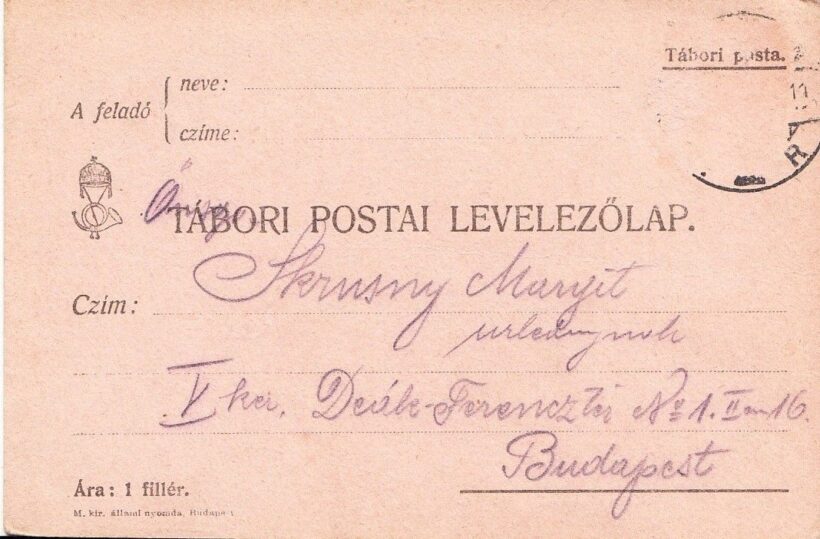 Tábori posta.
A feladó
neve:
czíme:
TÁBORI POSTAI LEVELEZŐLAP.
Skrusny Margit
Czím:
urleánynak
V ker. Deák-Ferencztér № 1. II em 16.
Budapest
Ára: 1 fillér.
M. kir. állami nyomda, Budapest